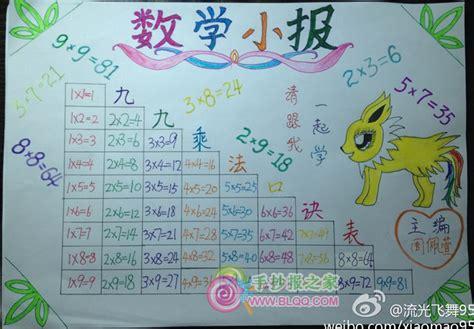 数学小报
5×7=21
9×9=81
3×8=24
2×9=18
2×3=6
5×7=35
8×8=64
请跟我
一起学
九九乘法口诀表
1×1=1
1×2=2 2×2=4
1×3=3 2×3=6 3×3=9
1×4=4 2×4=8 3×4=12 4×4=16
1×5=5 2×5=10 3×5=15 4×5=20 5×5=25
1×6=6 2×6=12 3×6=18 4×6=24 5×6=30 6×6=36
1×7=7 2×7=14 3×7=21 4×7=28 5×7=35 6×7=42 7×7=49
1×8=8 2×8=16 3×8=24 6×8=48 7×8=56 8×8=64
1×9=9 2×9=18 3×9=27 8×9=72 9×9=81
主编
手抄报之家
WWW.BLQQ.COM
@流光飞舞95
weibo.com/xiaomao95